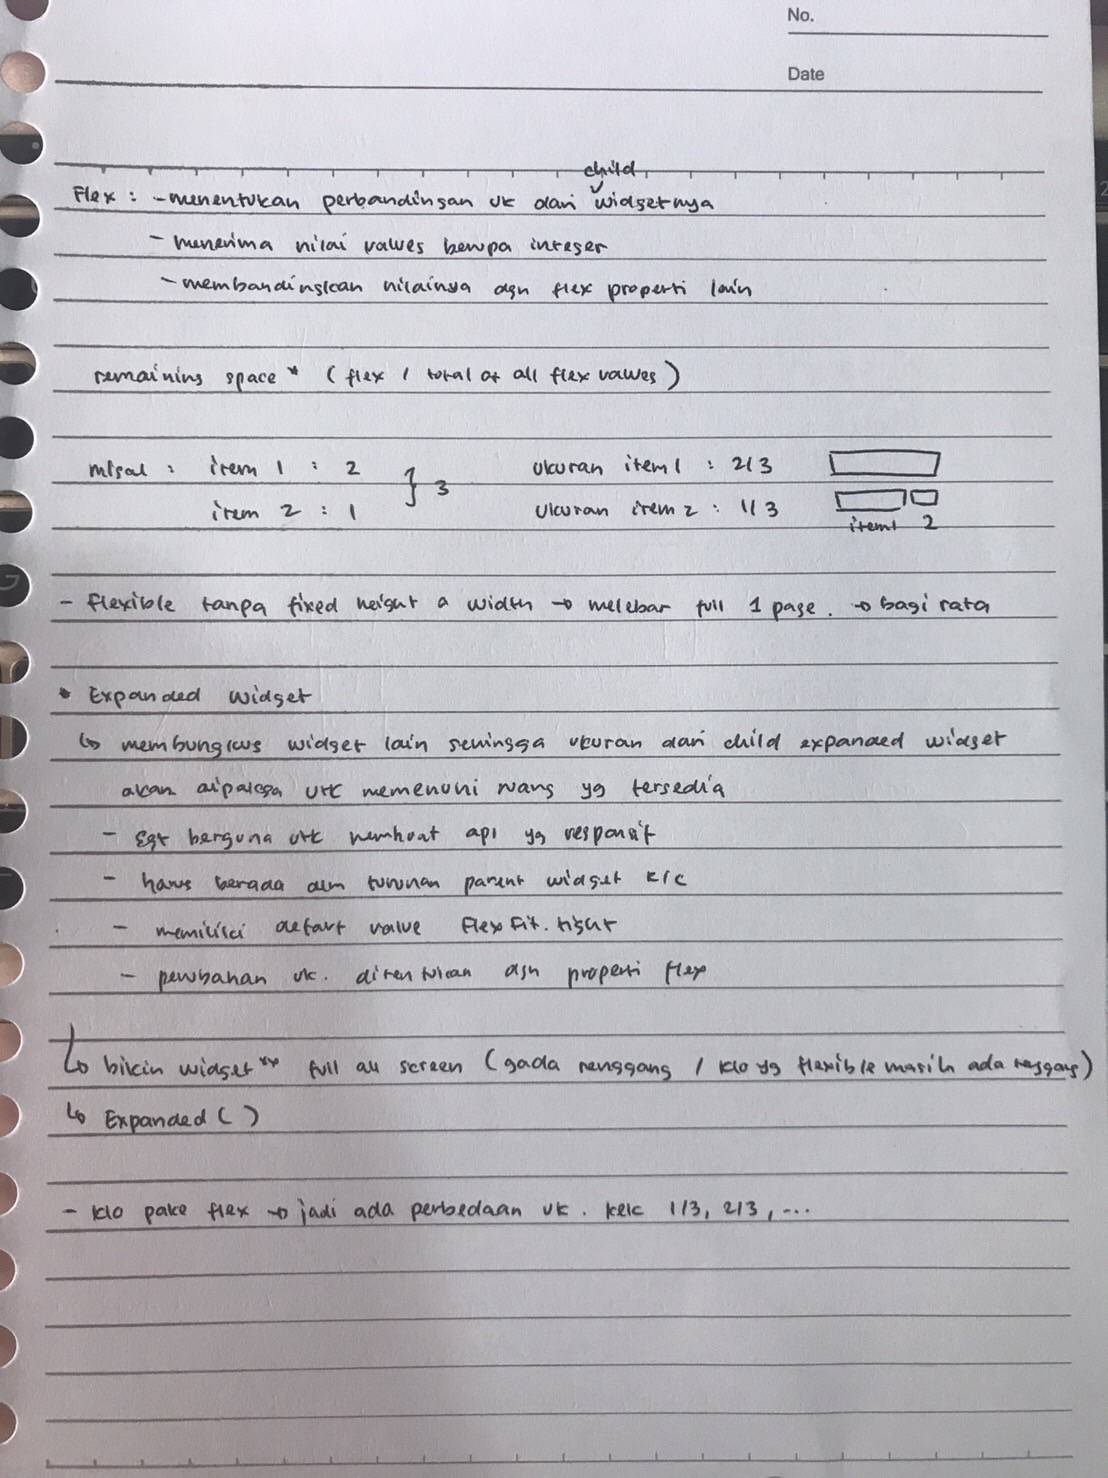 No.
Date
Flex : - menentukan perbandingan uk dari child widgetnya
- menerima nilai values berupa integer
- membandingkan nilainya dgn flex properti lain
remaining space * (flex / total of all flex values)
misal : item 1 : 2 } 3 ukuran item 1 : 2/3
item 2 : 1 ukuran item 2 : 1/3
item1 2
- flexible tanpa fixed height & width → melebar full 1 page. → bagi rata
* Expanded widget
↳ membungkus widget lain sehingga ukuran dari child expanded widget
akan dipaksa utk memenuhi ruang yg tersedia
- sgt berguna utk membuat apl yg responsif
- harus berada dlm turunan parent widget R/C
- memiliki defaut value FlexFit.tight
- perubahan uk. ditentukan dgn properti flex
↳ bikin widget** full all screen (gada renggang / klo yg flexible masih ada renggang)
↳ Expanded ( )
- klo pake flex → jadi ada perbedaan uk. kek 1/3, 2/3, ...